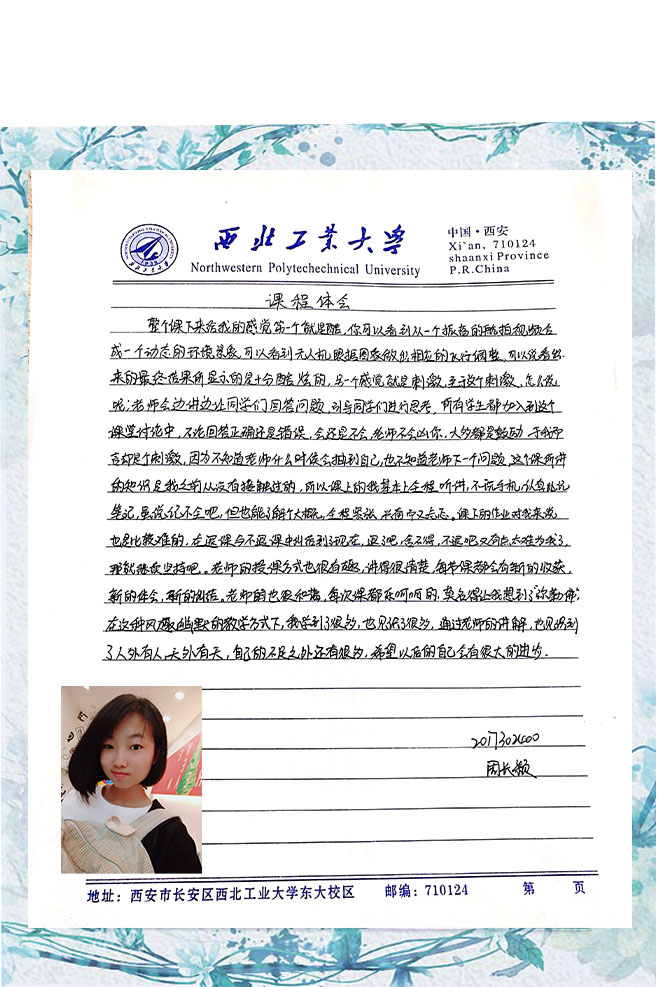 西北工业大学
Northwestern Polytechechnical University
中国·西安
Xi`an, 710124
shaanxi Province
P.R.China
课程体会
整个课下来给我的感觉第一个就是酷,你可以看到从一个振荡的航拍视频合
成一个动态的环境景象,可以看到无人机根据图象做出相应的飞行调整,可以说看出
来的最终结果所显示的是十分酷炫的,另一个感觉就是刺激,至于这个刺激,怎么说
呢:老师会边讲边让同学们回答问题,引导同学们进行思考,所有学生都加入到这个
课堂讨论中,不论回答正确还是错误,会还是不会,老师不会凶你,大多都是鼓励,于我而
言却是个刺激,因为不知道老师什么时候会抽到自己,也不知道老师下一个问题,这个课所讲
的知识是我之前从没有接触过的,所以课上的我基本上全程听讲,不玩手机,认真做
笔记,虽说记不全吧,但也能了解个大概,全程紧张,兴奋而又忐忑。课下的作业对我来说
也是比较难的,在退课与不退课中纠结到了现在,退了吧,舍不得,不退吧又有点太难为我了,
那就继续坚持吧。老师的授课方式也很有趣,讲得很清楚,每节课都会有新的收获,
新的体会,新的纠结。老师的也很和蔼,每次课都乐呵呵的,莫名得让我想到了"弥勒佛",
在这种风趣幽默的教学方式下,我学到了很多,也见识了很多,通过老师的讲解,也见识到
了人外有人,天外有天,自己的不足之处还有很多,希望以后的自己会有很大的进步.
周长颖
地址: 西安市长安区西北工业大学东大校区 邮编: 710124 第 页